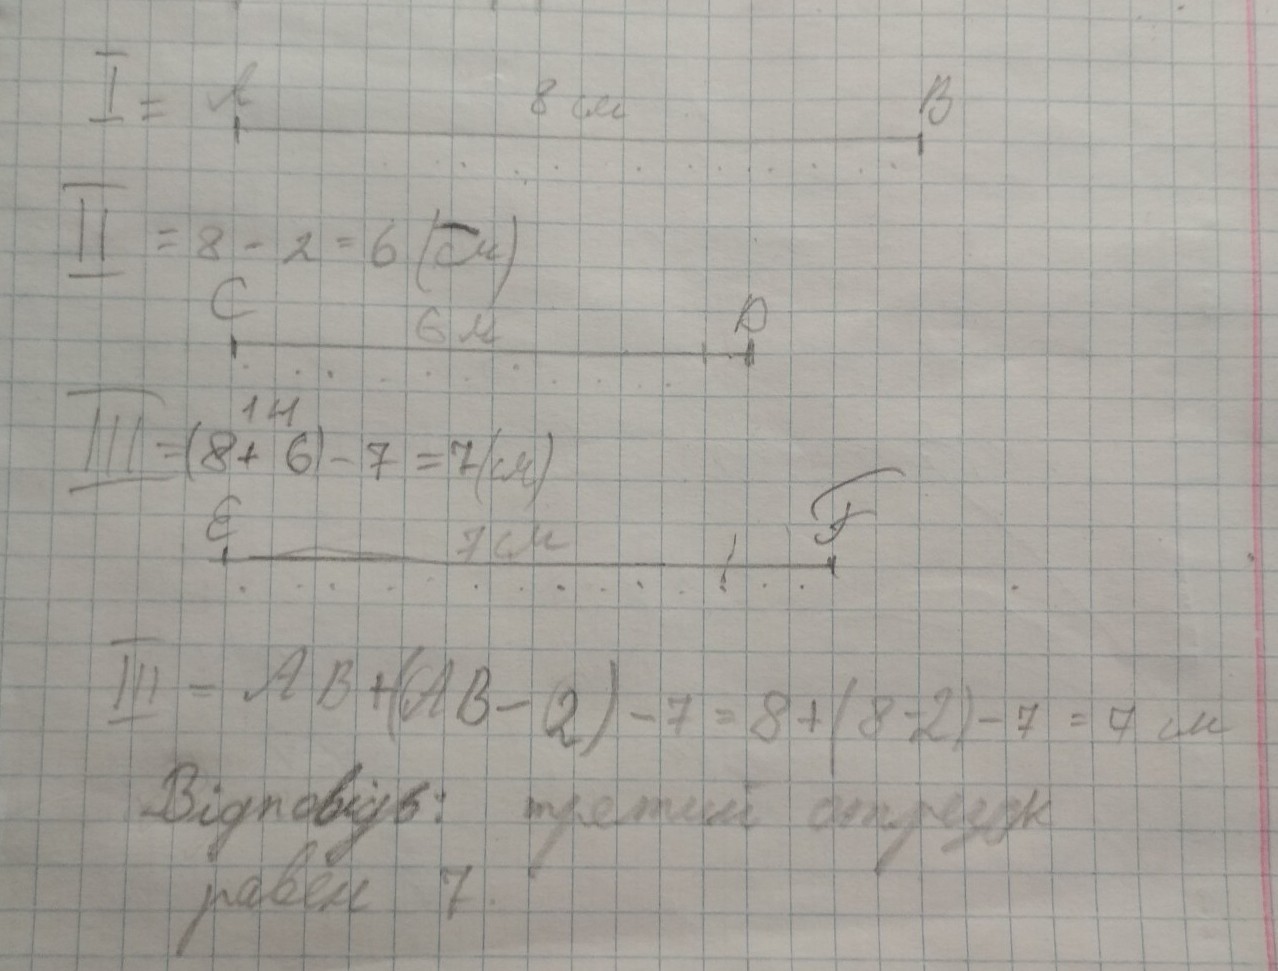 I = A 8 см B
II = 8 - 2 = 6 (см)
C 6 м D
14
III = (8 + 6) - 7 = 7 (см)
E 7 см F
III = AB + (AB - 2) - 7 = 8 + (8 - 2) - 7 = 7 см
Відповідь: третий отрезок
равен 7.